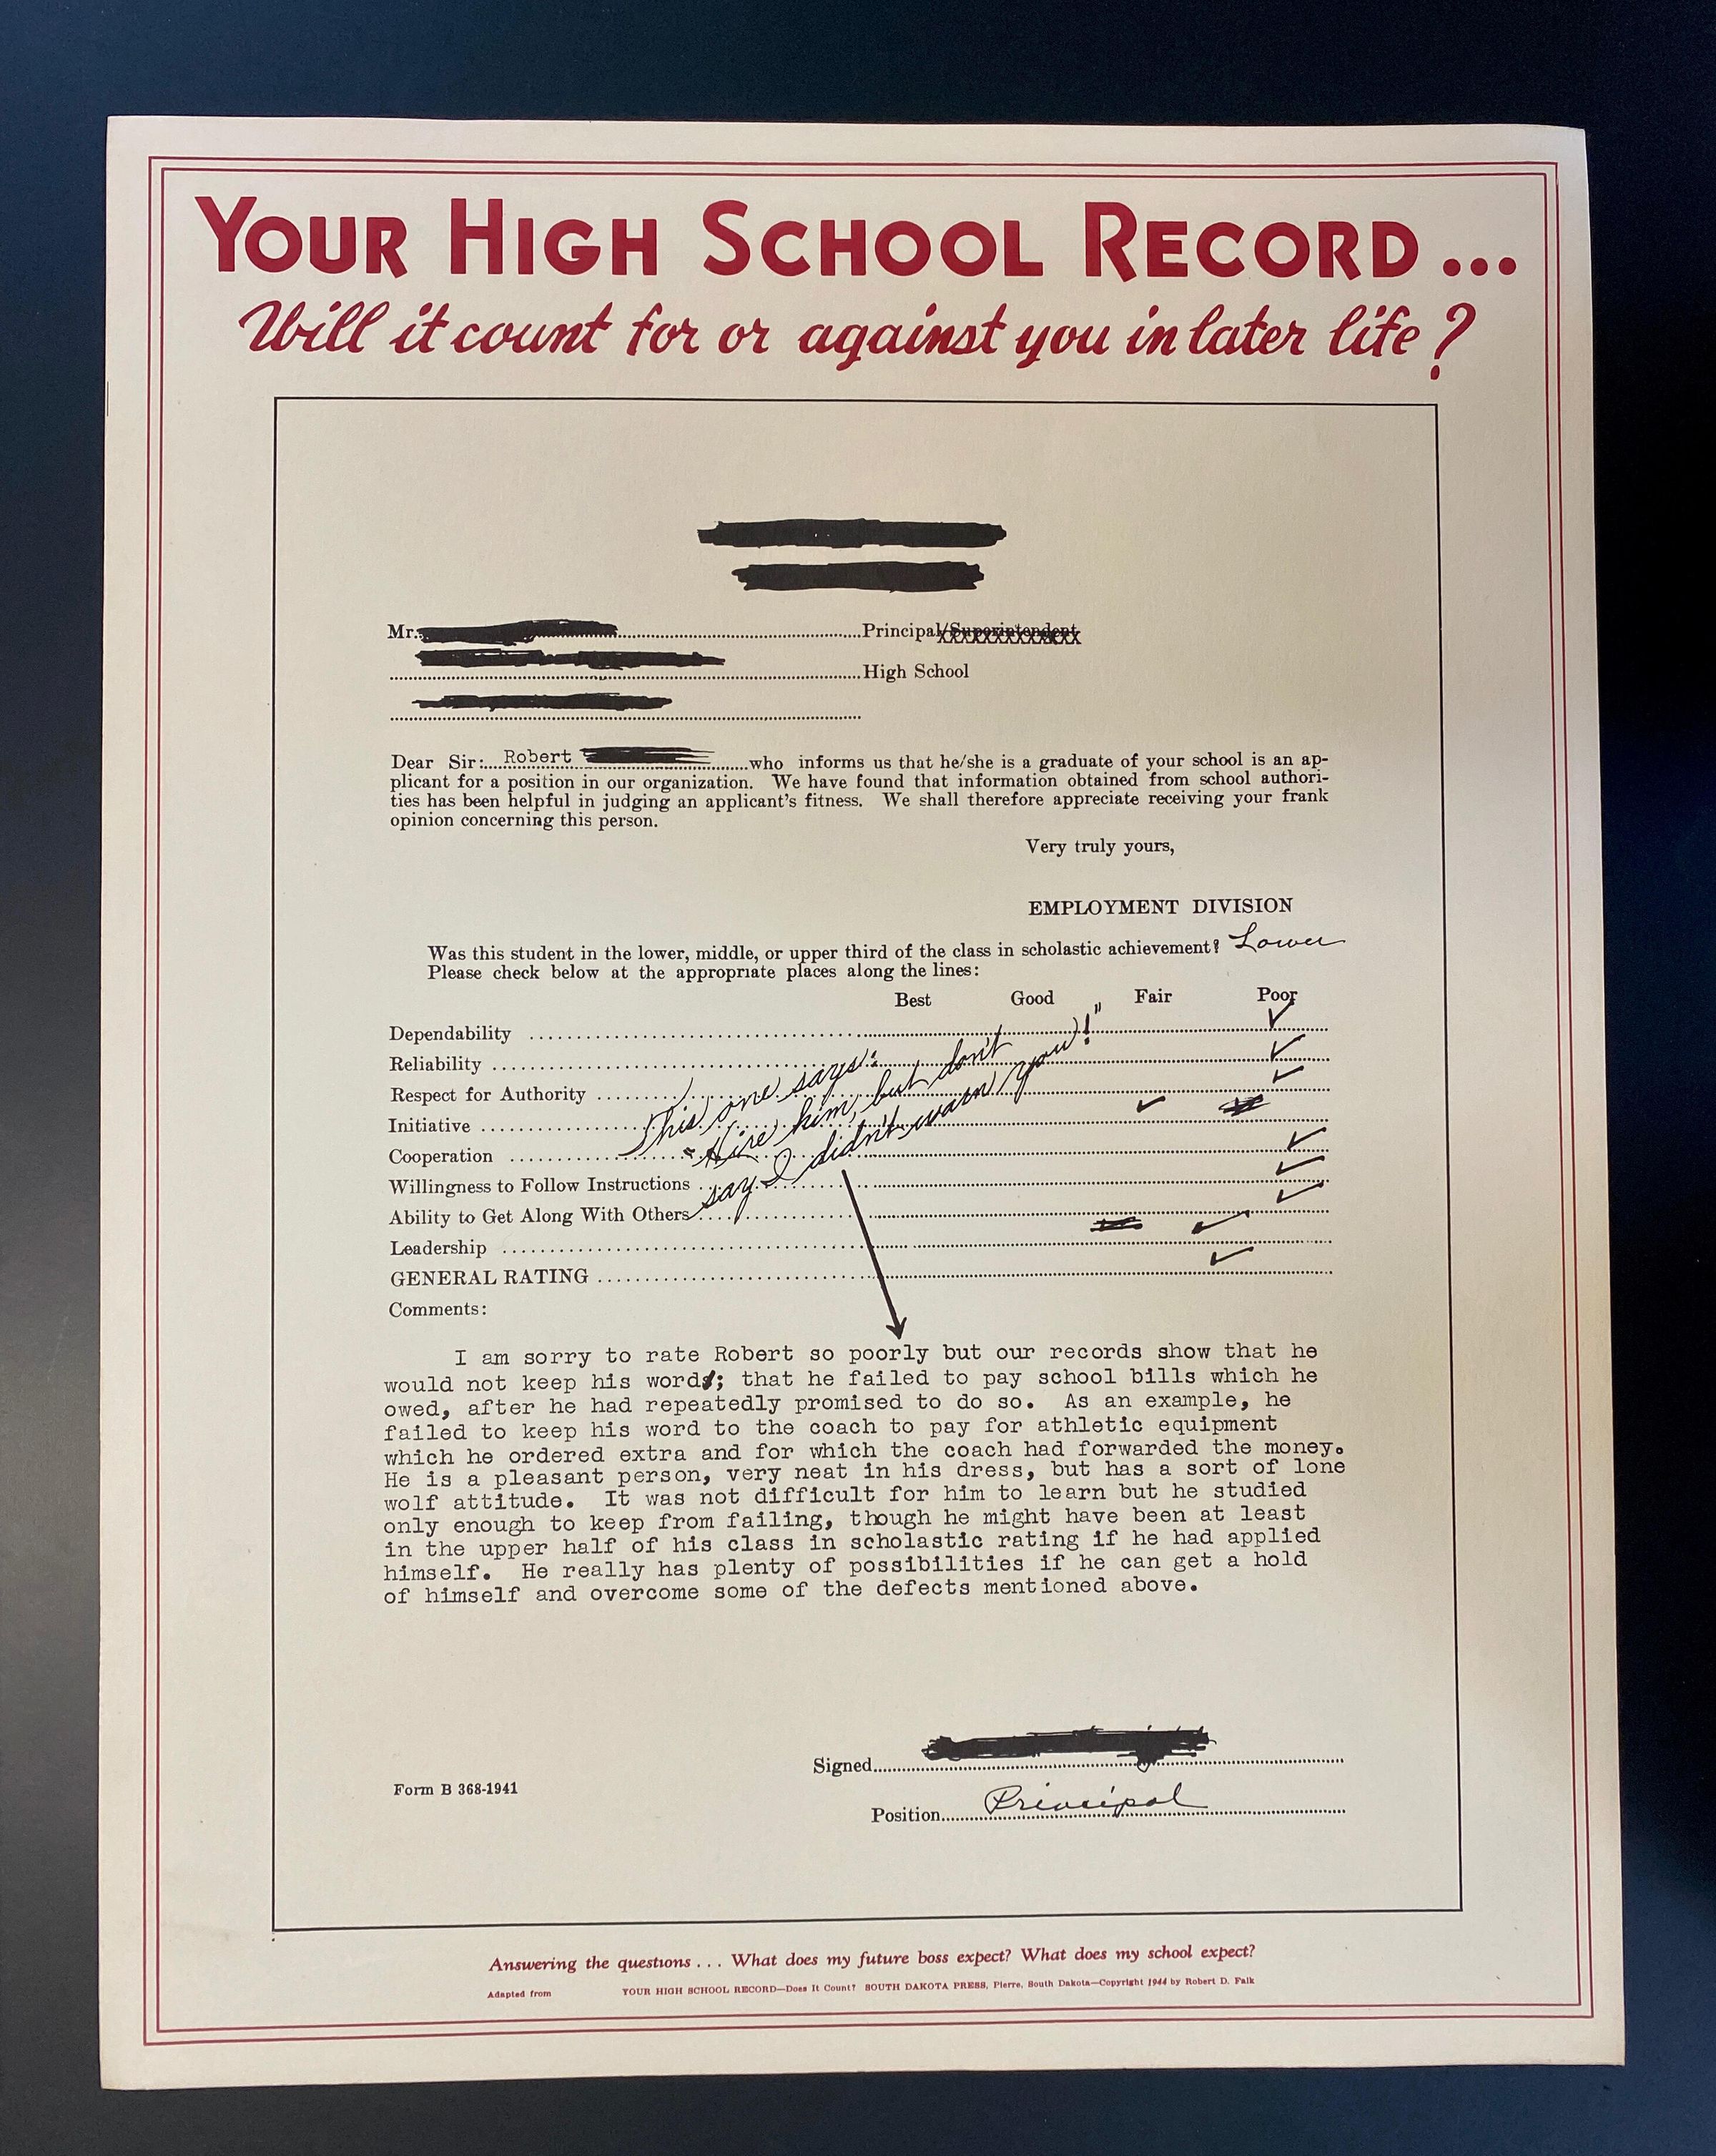 YOUR HIGH SCHOOL RECORD...
Will it count for or against you in later life?
Mr. Principal/Superintendent
High School
Dear Sir: Robert who informs us that he/she is a graduate of your school is an ap-
plicant for a position in our organization. We have found that information obtained from school authori-
ties has been helpful in judging an applicant's fitness. We shall therefore appreciate receiving your frank
opinion concerning this person.
Very truly yours,
EMPLOYMENT DIVISION
Was this student in the lower, middle, or upper third of the class in scholastic achievement? Lower
Please check below at the appropriate places along the lines:
Best Good Fair Poor
Dependability
Reliability
Respect for Authority
Initiative
Cooperation
Willingness to Follow Instructions
Ability to Get Along With Others
Leadership
GENERAL RATING
This one says:
"Hire him, but don't
say I didn't warn you!"
Comments:
I am sorry to rate Robert so poorly but our records show that he
would not keep his word; that he failed to pay school bills which he
owed, after he had repeatedly promised to do so. As an example, he
failed to keep his word to the coach to pay for athletic equipment
which he ordered extra and for which the coach had forwarded the money.
He is a pleasant person, very neat in his dress, but has a sort of lone
wolf attitude. It was not difficult for him to learn but he studied
only enough to keep from failing, though he might have been at least
in the upper half of his class in scholastic rating if he had applied
himself. He really has plenty of possibilities if he can get a hold
of himself and overcome some of the defects mentioned above.
Signed
Form B 368-1941
Position Principal
Answering the questions... What does my future boss expect? What does my school expect?
Adapted from YOUR HIGH SCHOOL RECORD—Does It Count? SOUTH DAKOTA PRESS, Pierre, South Dakota—Copyright 1944 by Robert D. Falk